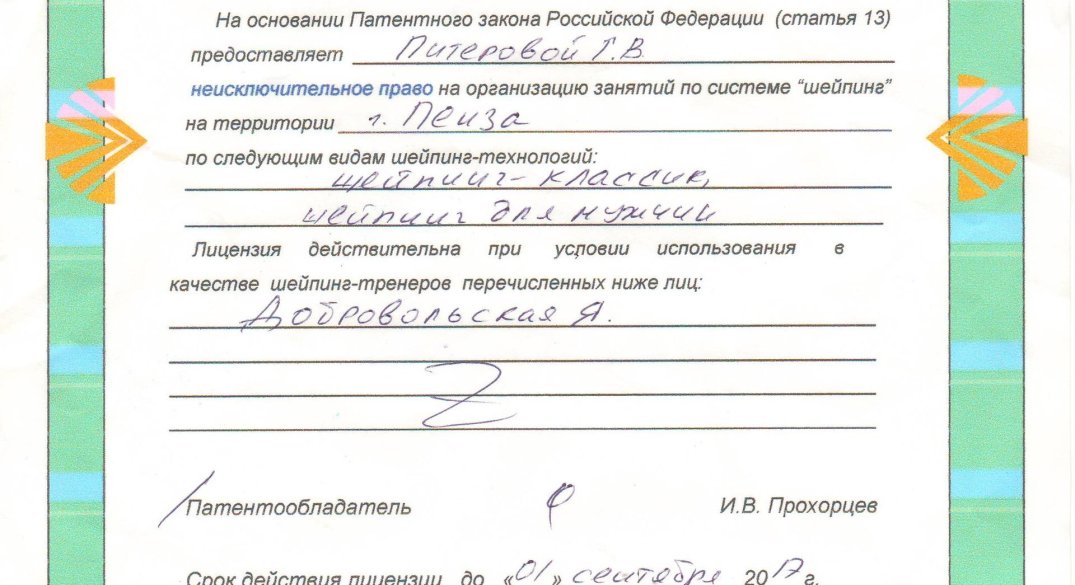 На основании Патентного закона Российской Федерации (статья 13)
предоставляет Питеровой Г.В
неисключительное право на организацию занятий по системе “шейпинг”
на территории г. Пенза
по следующим видам шейпинг-технологий:
шейпинг-классик,
шейпинг для мужчин
Лицензия действительна при условии использования в
качестве шейпинг-тренеров перечисленных ниже лиц:
Добровольская Я.
Патентообладатель И.В. Прохорцев
Срок действия лицензии до «01» сентября 2017 г.